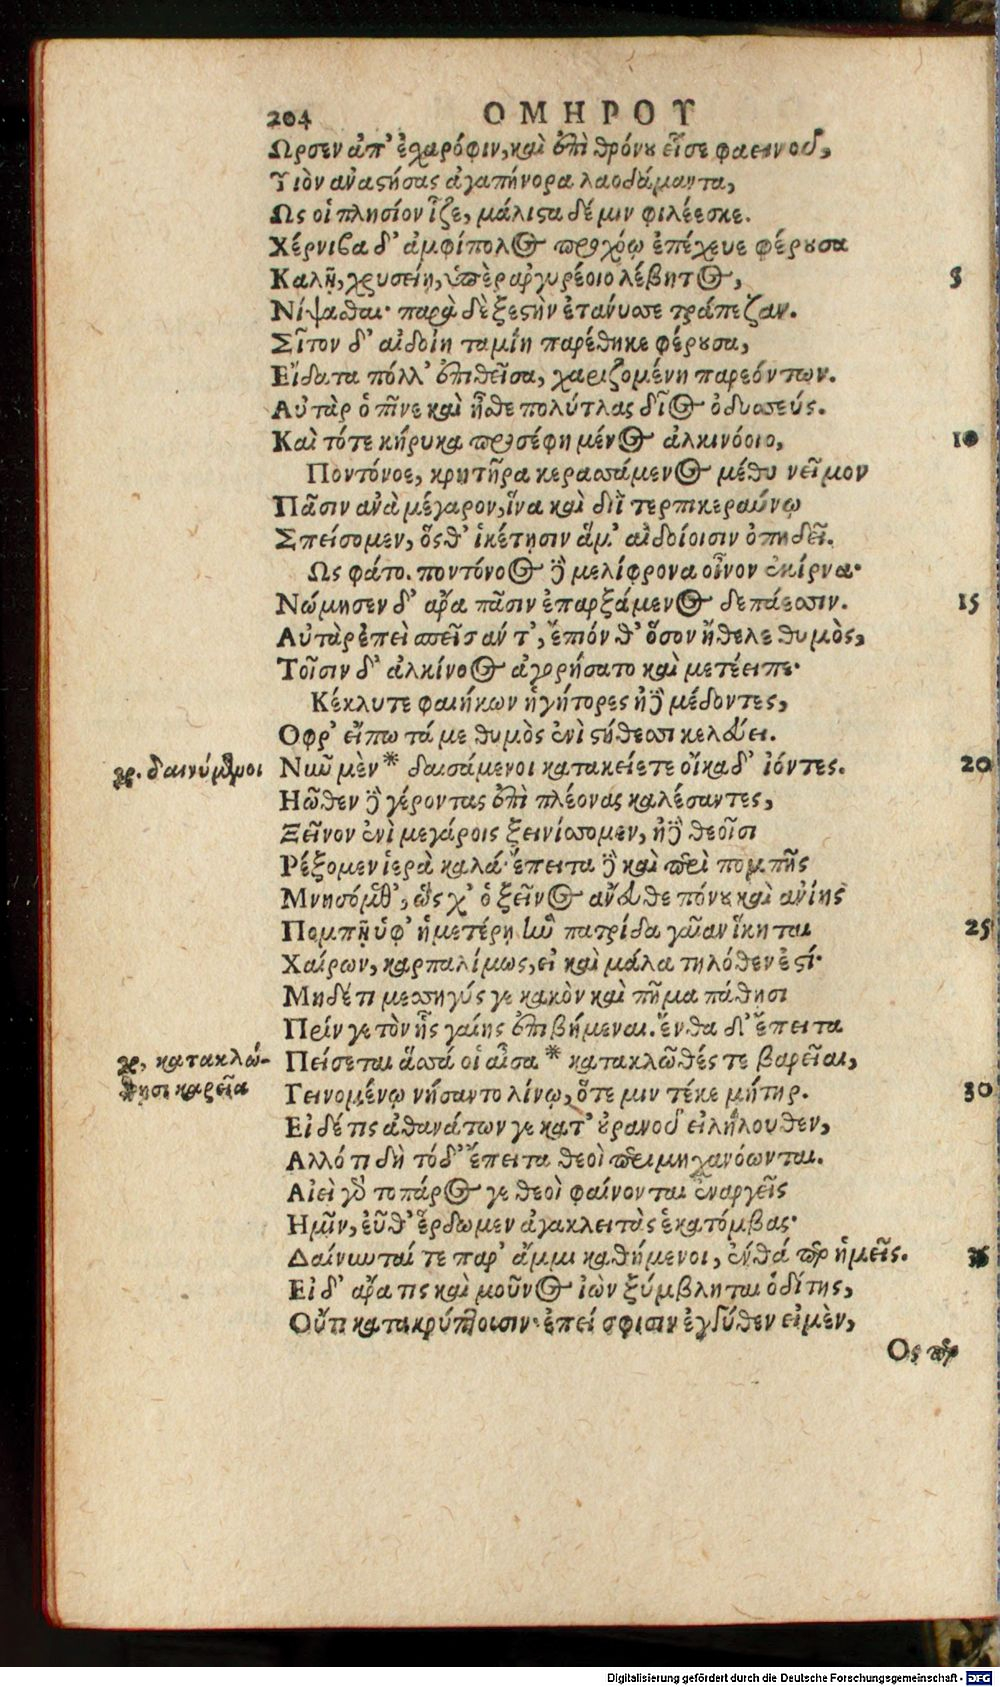 204 ΟΜΗΡΟΥ
Ωρσεν ἀπ' ἐσχαρόφιν, καὶ ἐπὶ θρόνου εἷσε φαεινοῦ,
Υἱὸν ἀναστήσας ἀγαπήνορα λαοδάμαντα,
Ως οἱ πλησίον ἷζε, μάλιστα δέ μιν φιλέεσκε.
Χέρνιβα δ' ἀμφίπολος προχόῳ ἐπέχευε φέρουσα
Καλῇ, χρυσείῃ, ὑπὲρ ἀργυρέοιο λέβητος, 5
Νίψασθαι· παρὰ δὲ ξεστὴν ἐτάνυσσε τράπεζαν.
Σῖτον δ' αἰδοίη ταμίη παρέθηκε φέρουσα,
Εἴδατα πόλλ' ἐπιθεῖσα, χαριζομένη παρεόντων.
Αὐτὰρ ὁ πῖνε καὶ ἦσθε πολύτλας δῖος ὀδυσσεύς.
Καὶ τότε κήρυκα προσέφη μένος ἀλκινόοιο, 10
Ποντόνοε, κρητῆρα κερασσάμενος μέθυ νεῖμον
Πᾶσιν ἀνὰ μέγαρον, ἵνα καὶ διῒ τερπικεραύνῳ
Σπείσομεν, ὅς θ' ἱκέτῃσιν ἅμ' αἰδοίοισιν ὀπηδεῖ.
Ως φάτο. ποντόνοος δὲ μελίφρονα οἶνον ἐκίρνα·
Νώμησεν δ' ἄρα πᾶσιν ἐπαρξάμενος δεπάεσσιν. 15
Αὐτὰρ ἐπεὶ σπεῖσαν τ', ἔπιόν θ' ὅσον ἤθελε θυμὸς,
Τοῖσιν δ' ἀλκίνοος ἀγορήσατο καὶ μετέειπε·
Κέκλυτε φαιήκων ἡγήτορες ἠδὲ μέδοντες,
Οφρ' εἴπω τά με θυμὸς ἐνὶ στήθεσσι κελεύει.
γρ. δαινύμενοι Νῦν μὲν* δαισάμενοι κατακείετε οἴκαδ' ἰόντες. 20
Ηῶθεν δὲ γέροντας ἐπὶ πλέονας καλέσαντες,
Ξεῖνον ἐνὶ μεγάροις ξεινίσσομεν, ἠδὲ θεοῖσι
Ρέξομεν ἱερὰ καλά· ἔπειτα δὲ καὶ περὶ πομπῆς
Μνησόμεθ', ὥς χ' ὁ ξεῖνος ἄνευθε πόνου καὶ ἀνίης
Πομπῇ ὑφ' ἡμετέρῃ ἣν πατρίδα γαῖαν ἵκηται 25
Χαίρων, καρπαλίμως, εἰ καὶ μάλα τηλόθεν ἐστί·
Μηδέ τι μεσσηγύς γε κακὸν καὶ πῆμα πάθῃσι
Πρίν γε τὸν ἧς γαίης ἐπιβήμεναι. ἔνθα δ' ἔπειτα
γρ, κατακλώ- Πείσεται ἅσσά οἱ αἶσα * κατακλῶθές τε βαρεῖαι,
θῃσι καρεῖα Γεινομένῳ νήσαντο λίνῳ, ὅτε μιν τέκε μήτηρ. 30
Εἰ δέ τις ἀθανάτων γε κατ' οὐρανοῦ εἰλήλουθεν,
Αλλό τι δὴ τόδ' ἔπειτα θεοὶ περιμηχανόωνται.
Αἰεὶ γὰρ τοπάρος γε θεοὶ φαίνονται ἐναργεῖς
Ημῖν, εὖθ' ἕρδωμεν ἀγακλειτὰς ἑκατόμβας·
Δαίνυνταί τε παρ' ἄμμι καθήμενοι, ἔνθά περ ἡμεῖς. 35
Εἰ δ' ἄρα τις καὶ μοῦνος ἰὼν ξύμβληται ὁδίτης,
Οὔτι κατακρύπτουσιν· ἐπεί σφισιν ἐγγύθεν εἰμὲν,
Ος περ
Digitalisierung gefördert durch die Deutsche Forschungsgemeinschaft - DFG